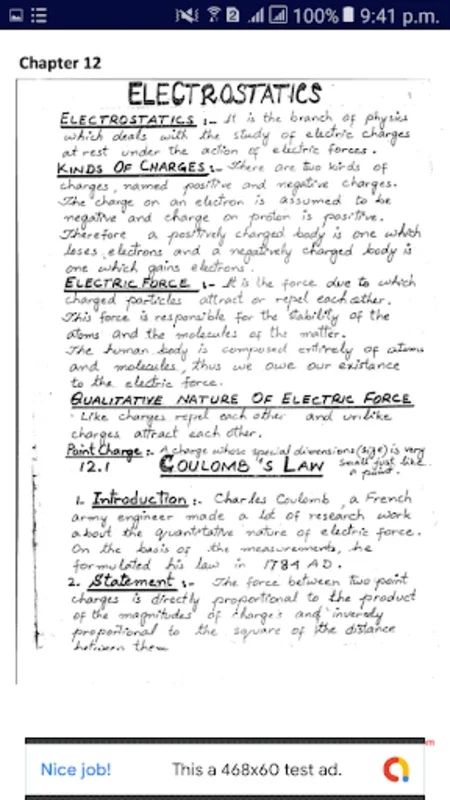 2 100% 9:41 p.m.
Chapter 12
ELECTROSTATICS
ELECTROSTATICS :- It is the branch of physics
which deals with the study of electric charges
at rest under the action of electric forces.
KINDS OF CHARGES:- There are two kinds of
charges, named positive and negative charges.
The charge on an electron is assumed to be
negative and charge on proton is positive.
Therefore a positively charged body is one which
loses electrons and a negatively charged body is
one which gains electrons.
ELECTRIC FORCE :- It is the force due to which
charged particles attract or repel each other.
This force is responsible for the stability of the
atoms and the molecules of the matter.
The human body is composed entirely of atoms
and molecules, thus we owe our existance
to the electric force.
QUALITATIVE NATURE OF ELECTRIC FORCE
Like charges repel each other and unlike
charges attract each other.
Point Charge :- A charge whose special dimensions (size) is very
small just like
a point.
12.1 COULOMB'S LAW
1. Introduction :- Charles Coulomb, a French
army engineer made a lot of research work
about the quantitative nature of electric force.
On the basis of the measurements, he
formulated his law in 1784 AD.
2. Statement :- The force between two point
charges is directly proportional to the product
of the magnitudes of charges and inversly
proportional to the square of the distance
between them
Nice job! This a 468x60 test ad.